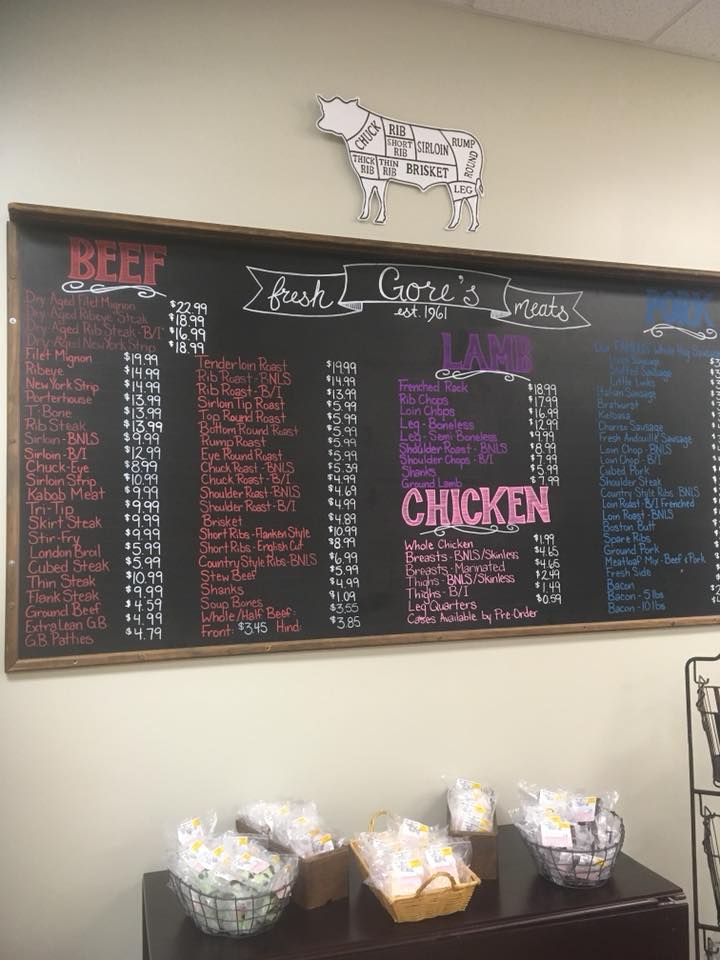 CHUCK
RIB
SHORT RIB
SIRLOIN
RUMP
ROUND
THICK RIB
THIN RIB
BRISKET
LEG
fresh Gore's meats
est. 1961
BEEF
Dry Aged Filet Mignon $22.99
Dry Aged Ribeye Steak $18.99
Dry Aged Rib Steak-B/I $16.99
Dry Aged New York Strip $18.99
Filet Mignon $19.99
Ribeye $14.99
New York Strip $14.99
Porterhouse $13.99
T-Bone $13.99
Rib Steak $13.99
Sirloin-BNLS $9.99
Sirloin-B/I $12.99
Chuck-Eye $8.99
Sirloin Strip $10.99
Kabob Meat $9.99
Tri-Tip $9.99
Skirt Steak $9.99
Stir-Fry $5.99
London Broil $5.99
Cubed Steak $5.99
Thin Steak $10.99
Flank Steak $9.99
Ground Beef $4.59
Extra Lean G.B. $4.99
G.B. Patties $4.79
Tenderloin Roast $19.99
Rib Roast-BNLS $14.99
Rib Roast-B/I $13.99
Sirloin Tip Roast $5.99
Top Round Roast $5.99
Bottom Round Roast $5.99
Rump Roast $5.99
Eye Round Roast $5.99
Chuck Roast-BNLS $5.39
Chuck Roast-B/I $4.99
Shoulder Roast-BNLS $4.69
Shoulder Roast-B/I $4.99
Brisket $4.89
Short Ribs-Flanken Style $10.99
Short Ribs-English Cut $8.99
Country Style Ribs-BNLS $6.99
Stew Beef $5.99
Shanks $4.99
Soup Bones $1.09
Whole/Half Beef: $3.55
Front: $3.45 Hind: $3.85
LAMB
Frenched Rack $18.99
Rib Chops $17.99
Loin Chops $16.99
Leg-Boneless $12.99
Leg-Semi Boneless $9.99
Shoulder Roast-BNLS $8.99
Shoulder Chops-B/I $7.99
Shanks $5.99
Ground Lamb $7.99
CHICKEN
Whole Chicken $1.99
Breasts-BNLS/Skinless $4.65
Breasts-Marinated $4.65
Thighs-BNLS/Skinless $2.49
Thighs-B/I $1.49
Leg Quarters $0.59
Cases Available by Pre-Order
PORK
Our FAMOUS Whole Hog Sausage
Link Sausage
Stuffed Sausage
Little Links
Italian Sausage
Bratwurst
Kielbasa
Chorizo Sausage
Fresh Andouille Sausage
Loin Chop-BNLS
Loin Chop-B/I
Cubed Pork
Shoulder Steak
Country Style Ribs BNLS
Loin Roast-B/I Frenched
Loin Roast-BNLS
Boston Butt
Spare Ribs
Ground Pork
Meatloaf Mix-Beef & Pork
Fresh Side
Bacon
Bacon-5 lbs
Bacon-10 lbs